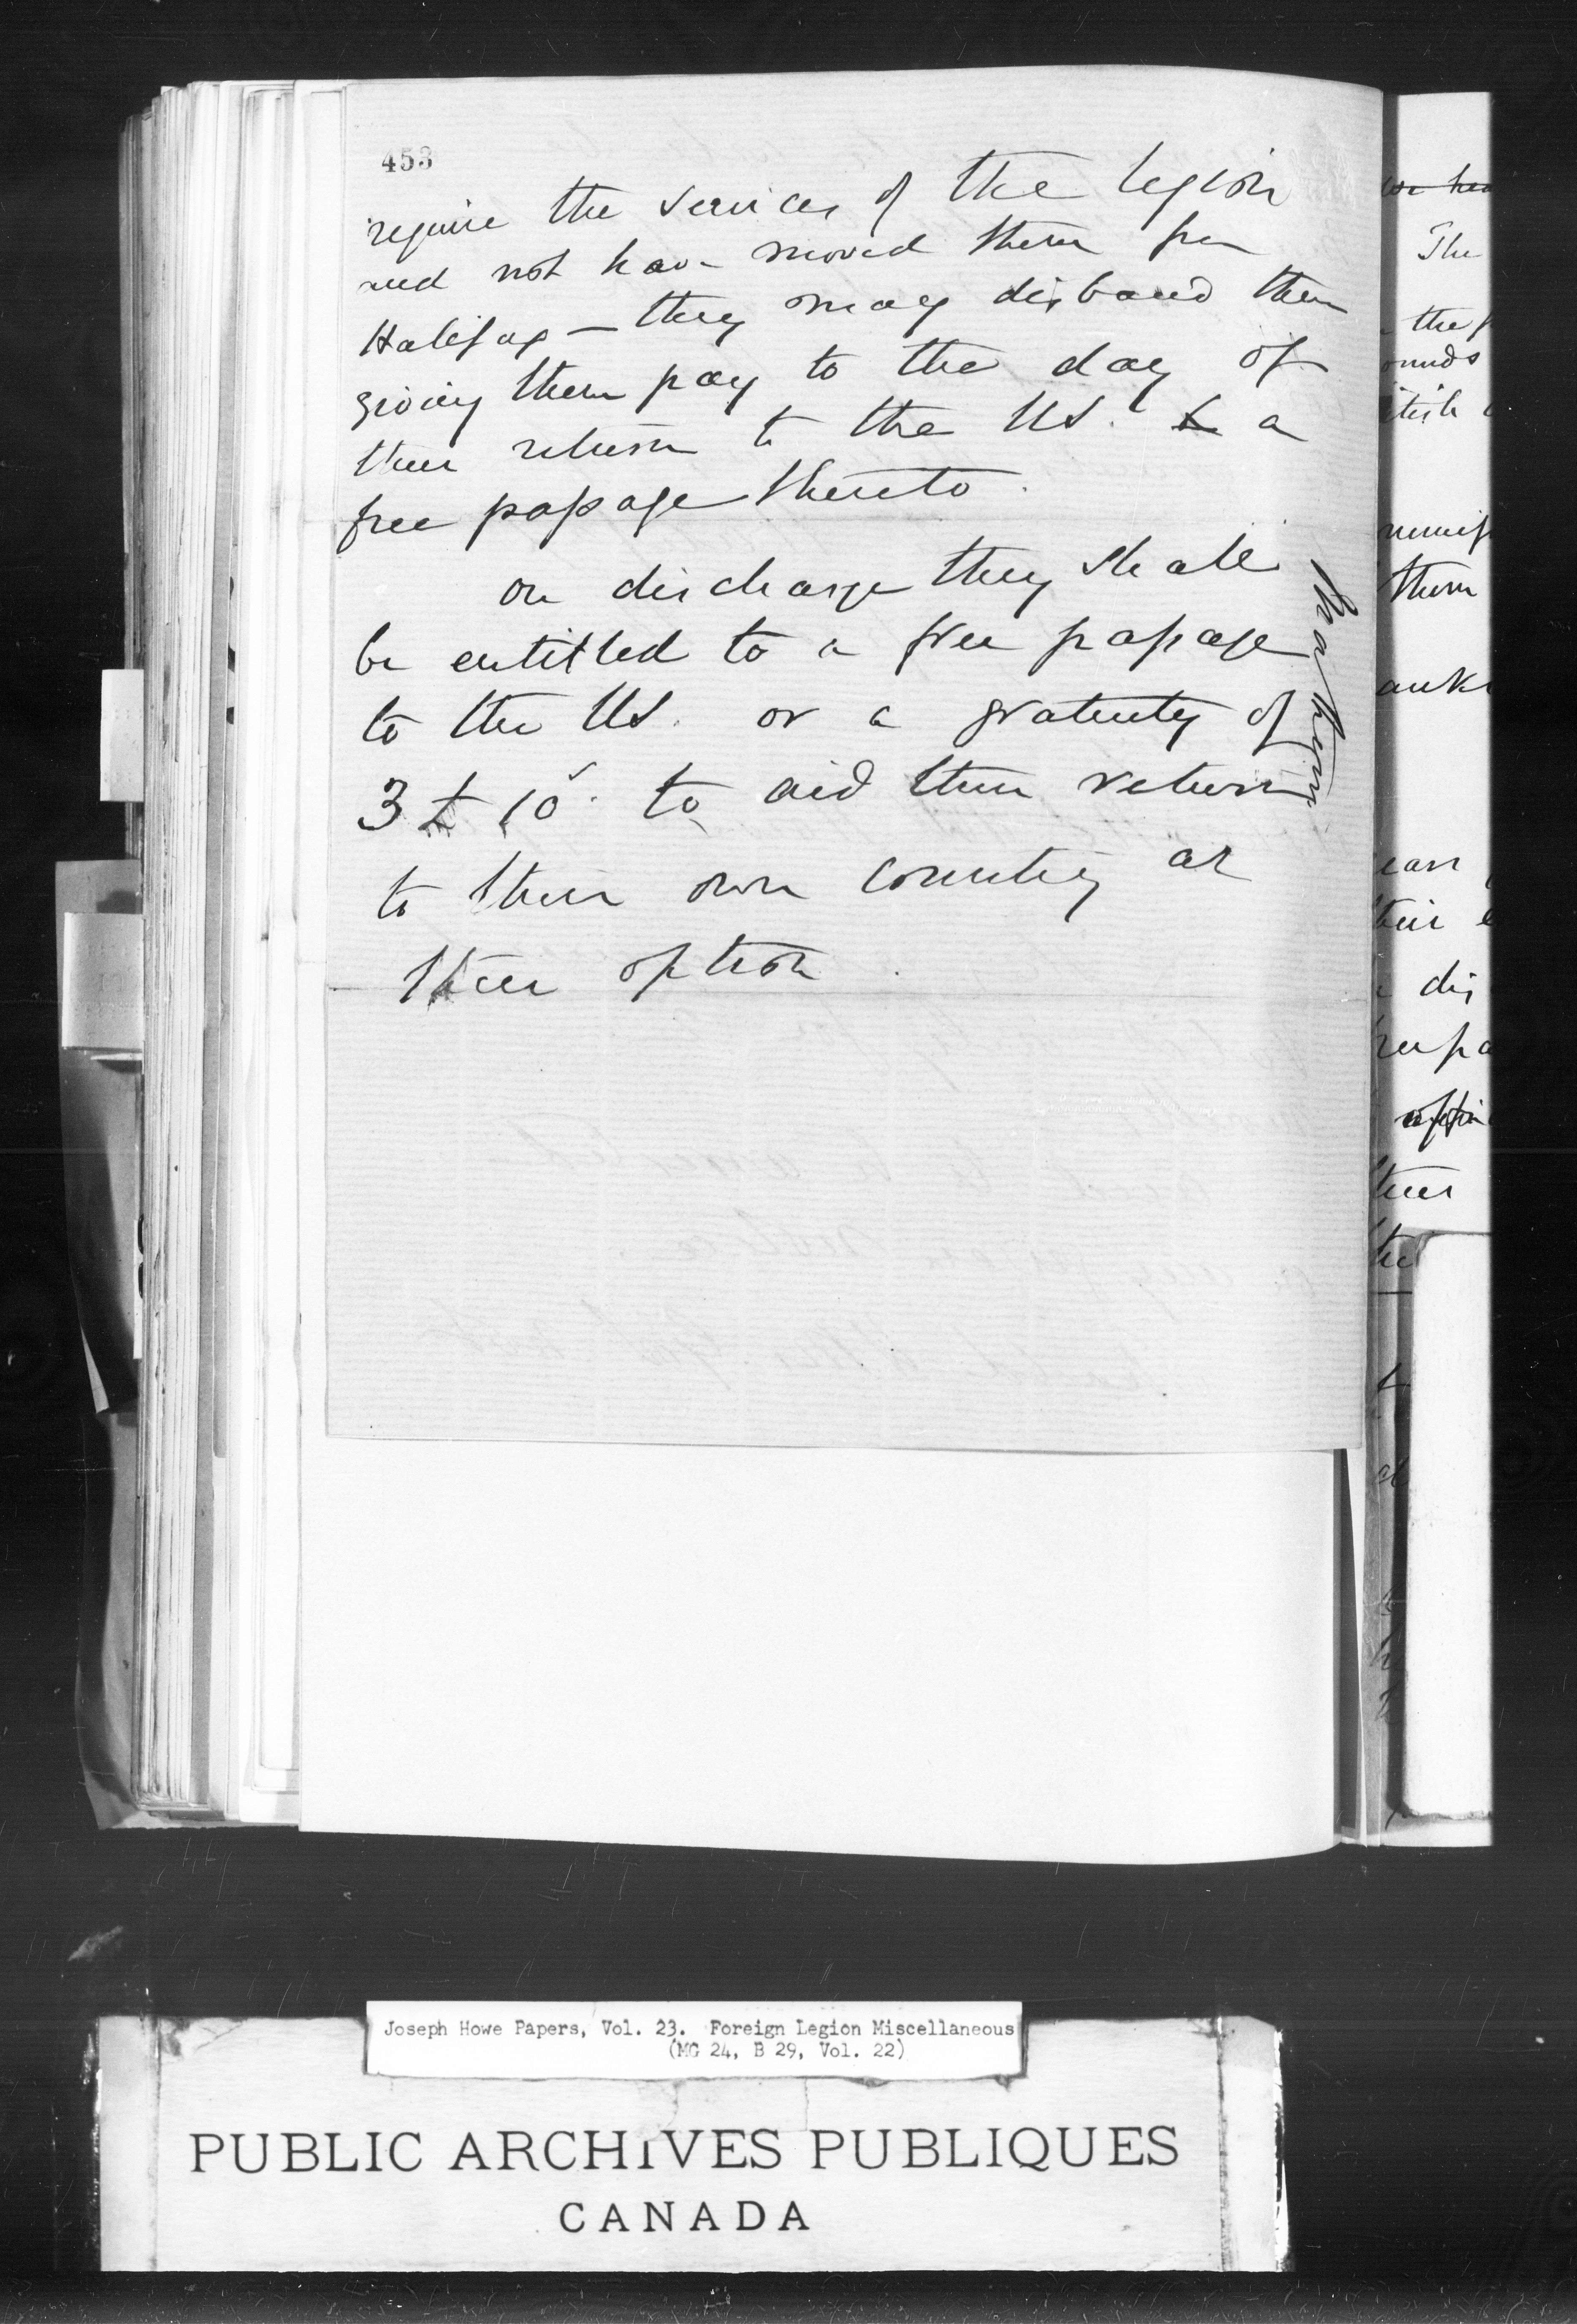 453
require the services of the Legion
and not have moved them from
Halifax — they may disband them
giving them pay to the day of
their return to the US. & a
free passage thereto.
on discharge they shall
be entitled to a free passage
to the US. or a gratuity of
3£ 10s. to aid their return
to their own country at
their option.
The
the
them
their
dis
Joseph Howe Papers, Vol. 23. Foreign Legion Miscellaneous
(MG 24, B 29, Vol. 22)
PUBLIC ARCHIVES PUBLIQUES
CANADA